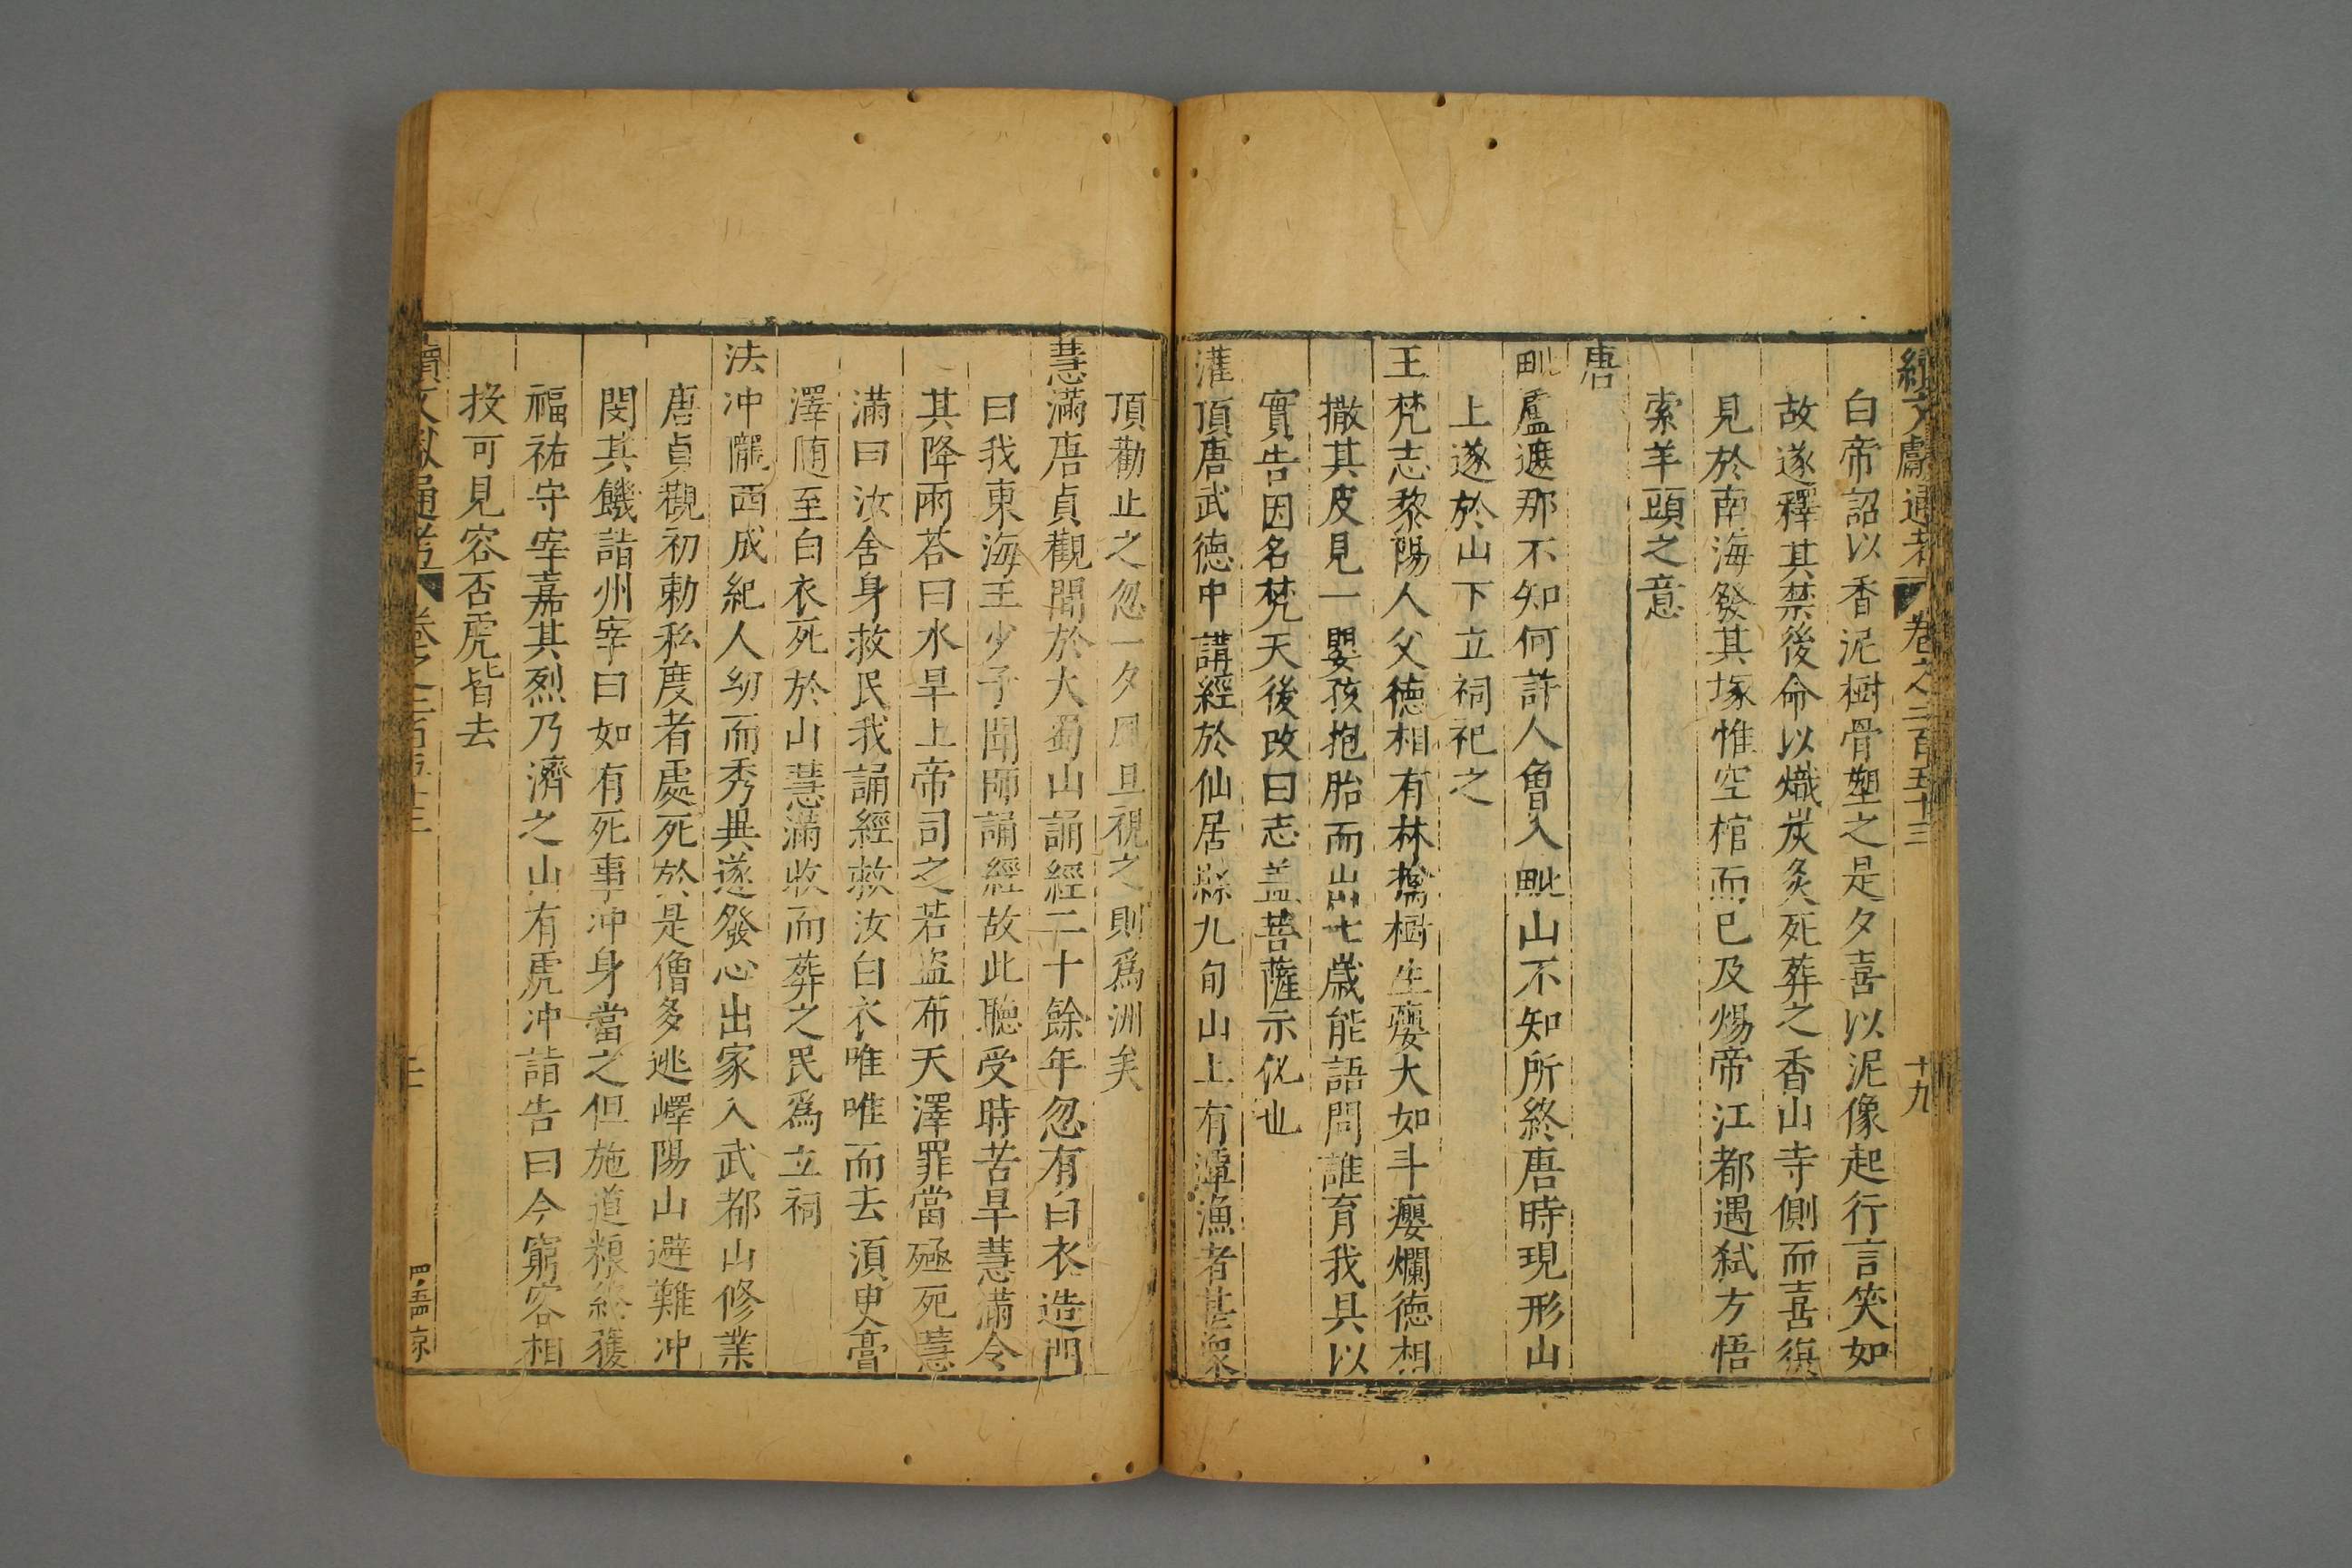 續文獻通考 卷之二百五十三 十九
白帝詔以香泥樹骨塑之是夕喜以泥像起行言笑如
故遂釋其禁後命以熾炭灸死葬之香山寺側而喜復
見於南海發其塚惟空棺而已及煬帝江都遇弑方悟
索羊頭之意
唐
毗盧遮那不知何許人魯入毗山不知所終唐時現形山
上遂於山下立祠祀之
王梵志黎陽人父德相有林檎樹生癭大如斗癭爛德相
撒其皮見一嬰孩抱胎而出七歲能語問誰育我具以
實告因名梵天後改曰志盖菩薩示化也
灌頂唐武德中講經於仙居縣九旬山上有潭漁者甚衆
頂勸止之忽一夕風旦視之則爲洲矣
慧滿唐貞觀間於大蜀山誦經二十餘年忽有白衣造門
曰我東海王少子聞師誦經故此聽受時苦旱慧滿令
其降雨荅曰水旱上帝司之若盗布天澤罪當殛死慧
滿曰汝舍身救民我誦經救汝白衣唯唯而去湏臾膏
澤随至白衣死於山慧滿收而葬之民爲立祠
法冲隴西成紀人幼而秀異遂發心出家入武都山修業
唐貞觀初勅私度者處死於是僧多逃嶧陽山避難冲
閔其饑詣州宰曰如有死事冲身當之但施道粮終獲
福祐守宰嘉其烈乃濟之山有虎冲詣告曰今窮客相
投可見容否虎皆去
續文獻通考 卷之二百五十三 二十 四百五十 京